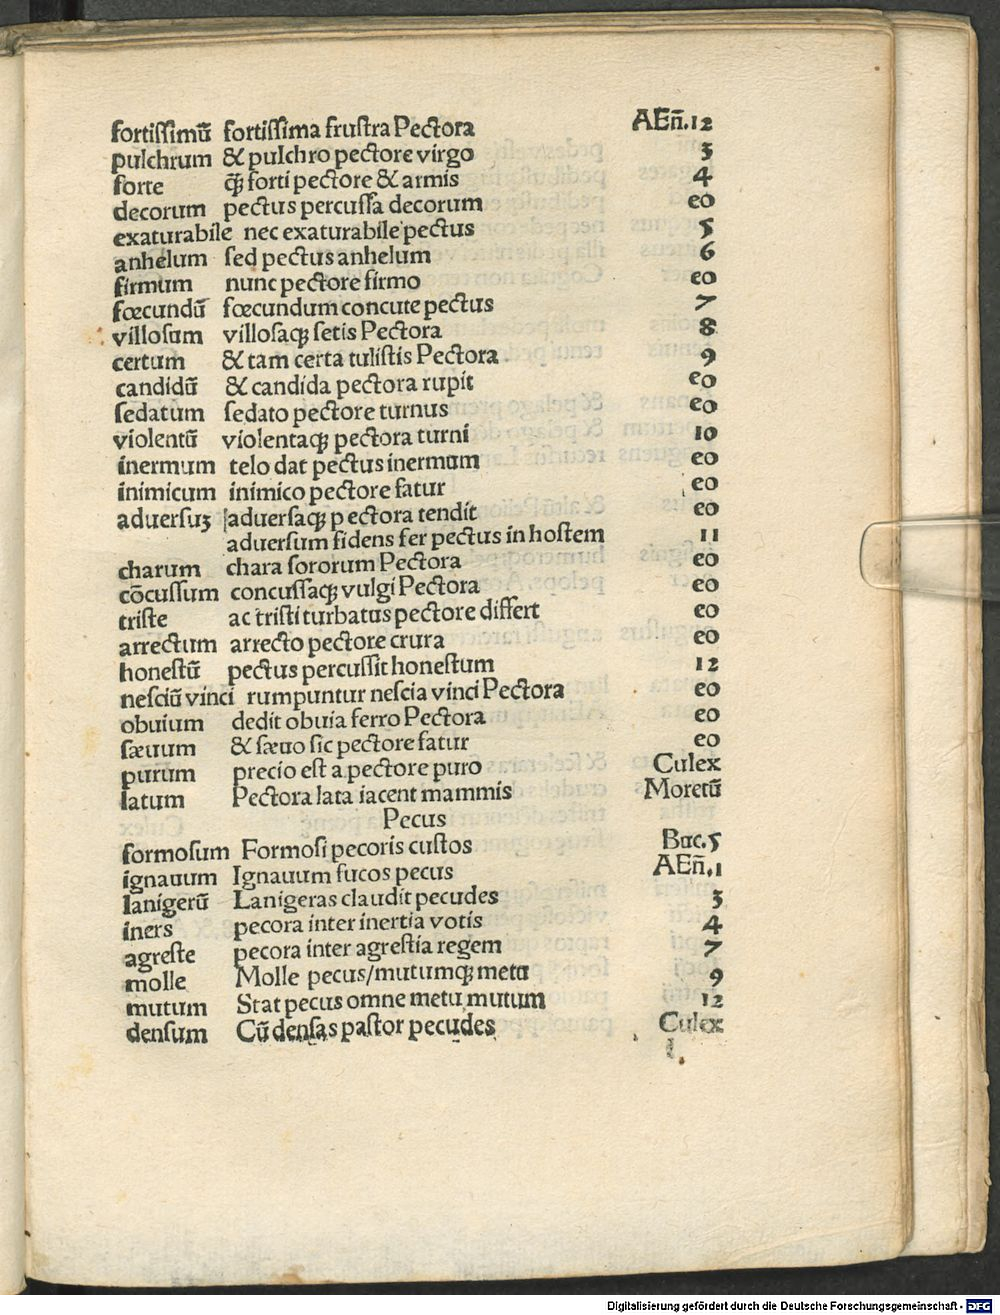 fortissimū fortissima frustra Pectora AEñ.12
pulchrum & pulchro pectore virgo 3
forte q̃ forti pectore & armis 4
decorum pectus percussa decorum eo
exaturabile nec exaturabile pectus 5
anhelum sed pectus anhelum 6
firmum nunc pectore firmo eo
fœcundū fœcundum concute pectus 7
villosum villosaqꝫ setis Pectora 8
certum & tam certa tulistis Pectora. 9
candidū & candida pectora rupit eo
sedatum sedato pectore turnus eo
violentū violentaqꝫ pectora turni 10
inermum telo dat pectus inermum eo
inimicum inimico pectore fatur eo
adversuꝫ adversaqꝫ pectora tendit eo
adversum fidens fer pectus in hostem 11
charum chara sororum Pectora eo
cōcussum concussaqꝫ vulgi Pectora eo
triste ac tristi turbatus pectore differt eo
arrectum arrecto pectore crura eo
honestū pectus percussit honestum 12
nesciū vinci rumpuntur nescia vinci Pectora eo
obuium dedit obuia ferro Pectora eo
sæuum & sæuo sic pectore fatur eo
purum precio est a pectore puro Culex
latum Pectora lata iacent mammis Moretū
Pecus
formosum Formosi pecoris custos Buc.5
ignauum Ignauum fucos pecus AEñ.1
lanigerū Lanigeras claudit pecudes 3
iners pecora inter inertia votis 4
agreste pecora inter agrestia regem 7
molle Molle pecus/mutumqꝫ metu 9
mutum Stat pecus omne metu mutum 12
densum Cū densas pastor pecudes Culex
Digitalisierung gefördert durch die Deutsche Forschungsgemeinschaft - DFG